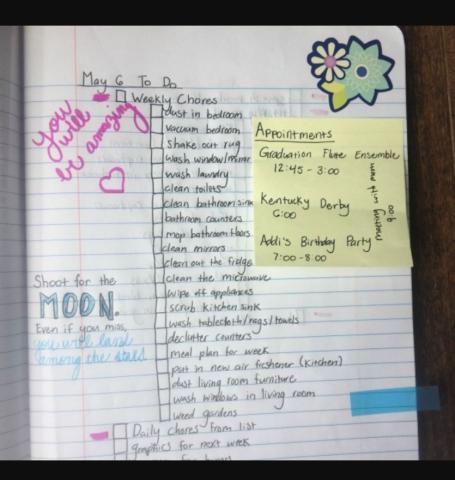 May 6 To Do
you
will
be amazing
Weekly Chores
dust in bedroom
vacuum bedroom
shake out rug
wash window/mirror
wash laundry
clean toilets
clean bathroom sink
bathroom counters
mop bathroom floors
clean mirrors
clean out the fridge
clean the microwave
wipe off appliances
scrub kitchen sink
wash tablecloth/rags/towels
declutter counters
meal plan for week
put in new air freshener (kitchen)
dust living room furniture
wash windows in living room
weed gardens
Daily chores from list
graphics for next week
Appointments
Graduation Flute Ensemble
12:45 - 3:00
Kentucky Derby
6:00
Addi's Birthday Party
7:00-8:00
meeting with mom
9:00
Shoot for the
MOON.
Even if you miss,
you will land
among the stars